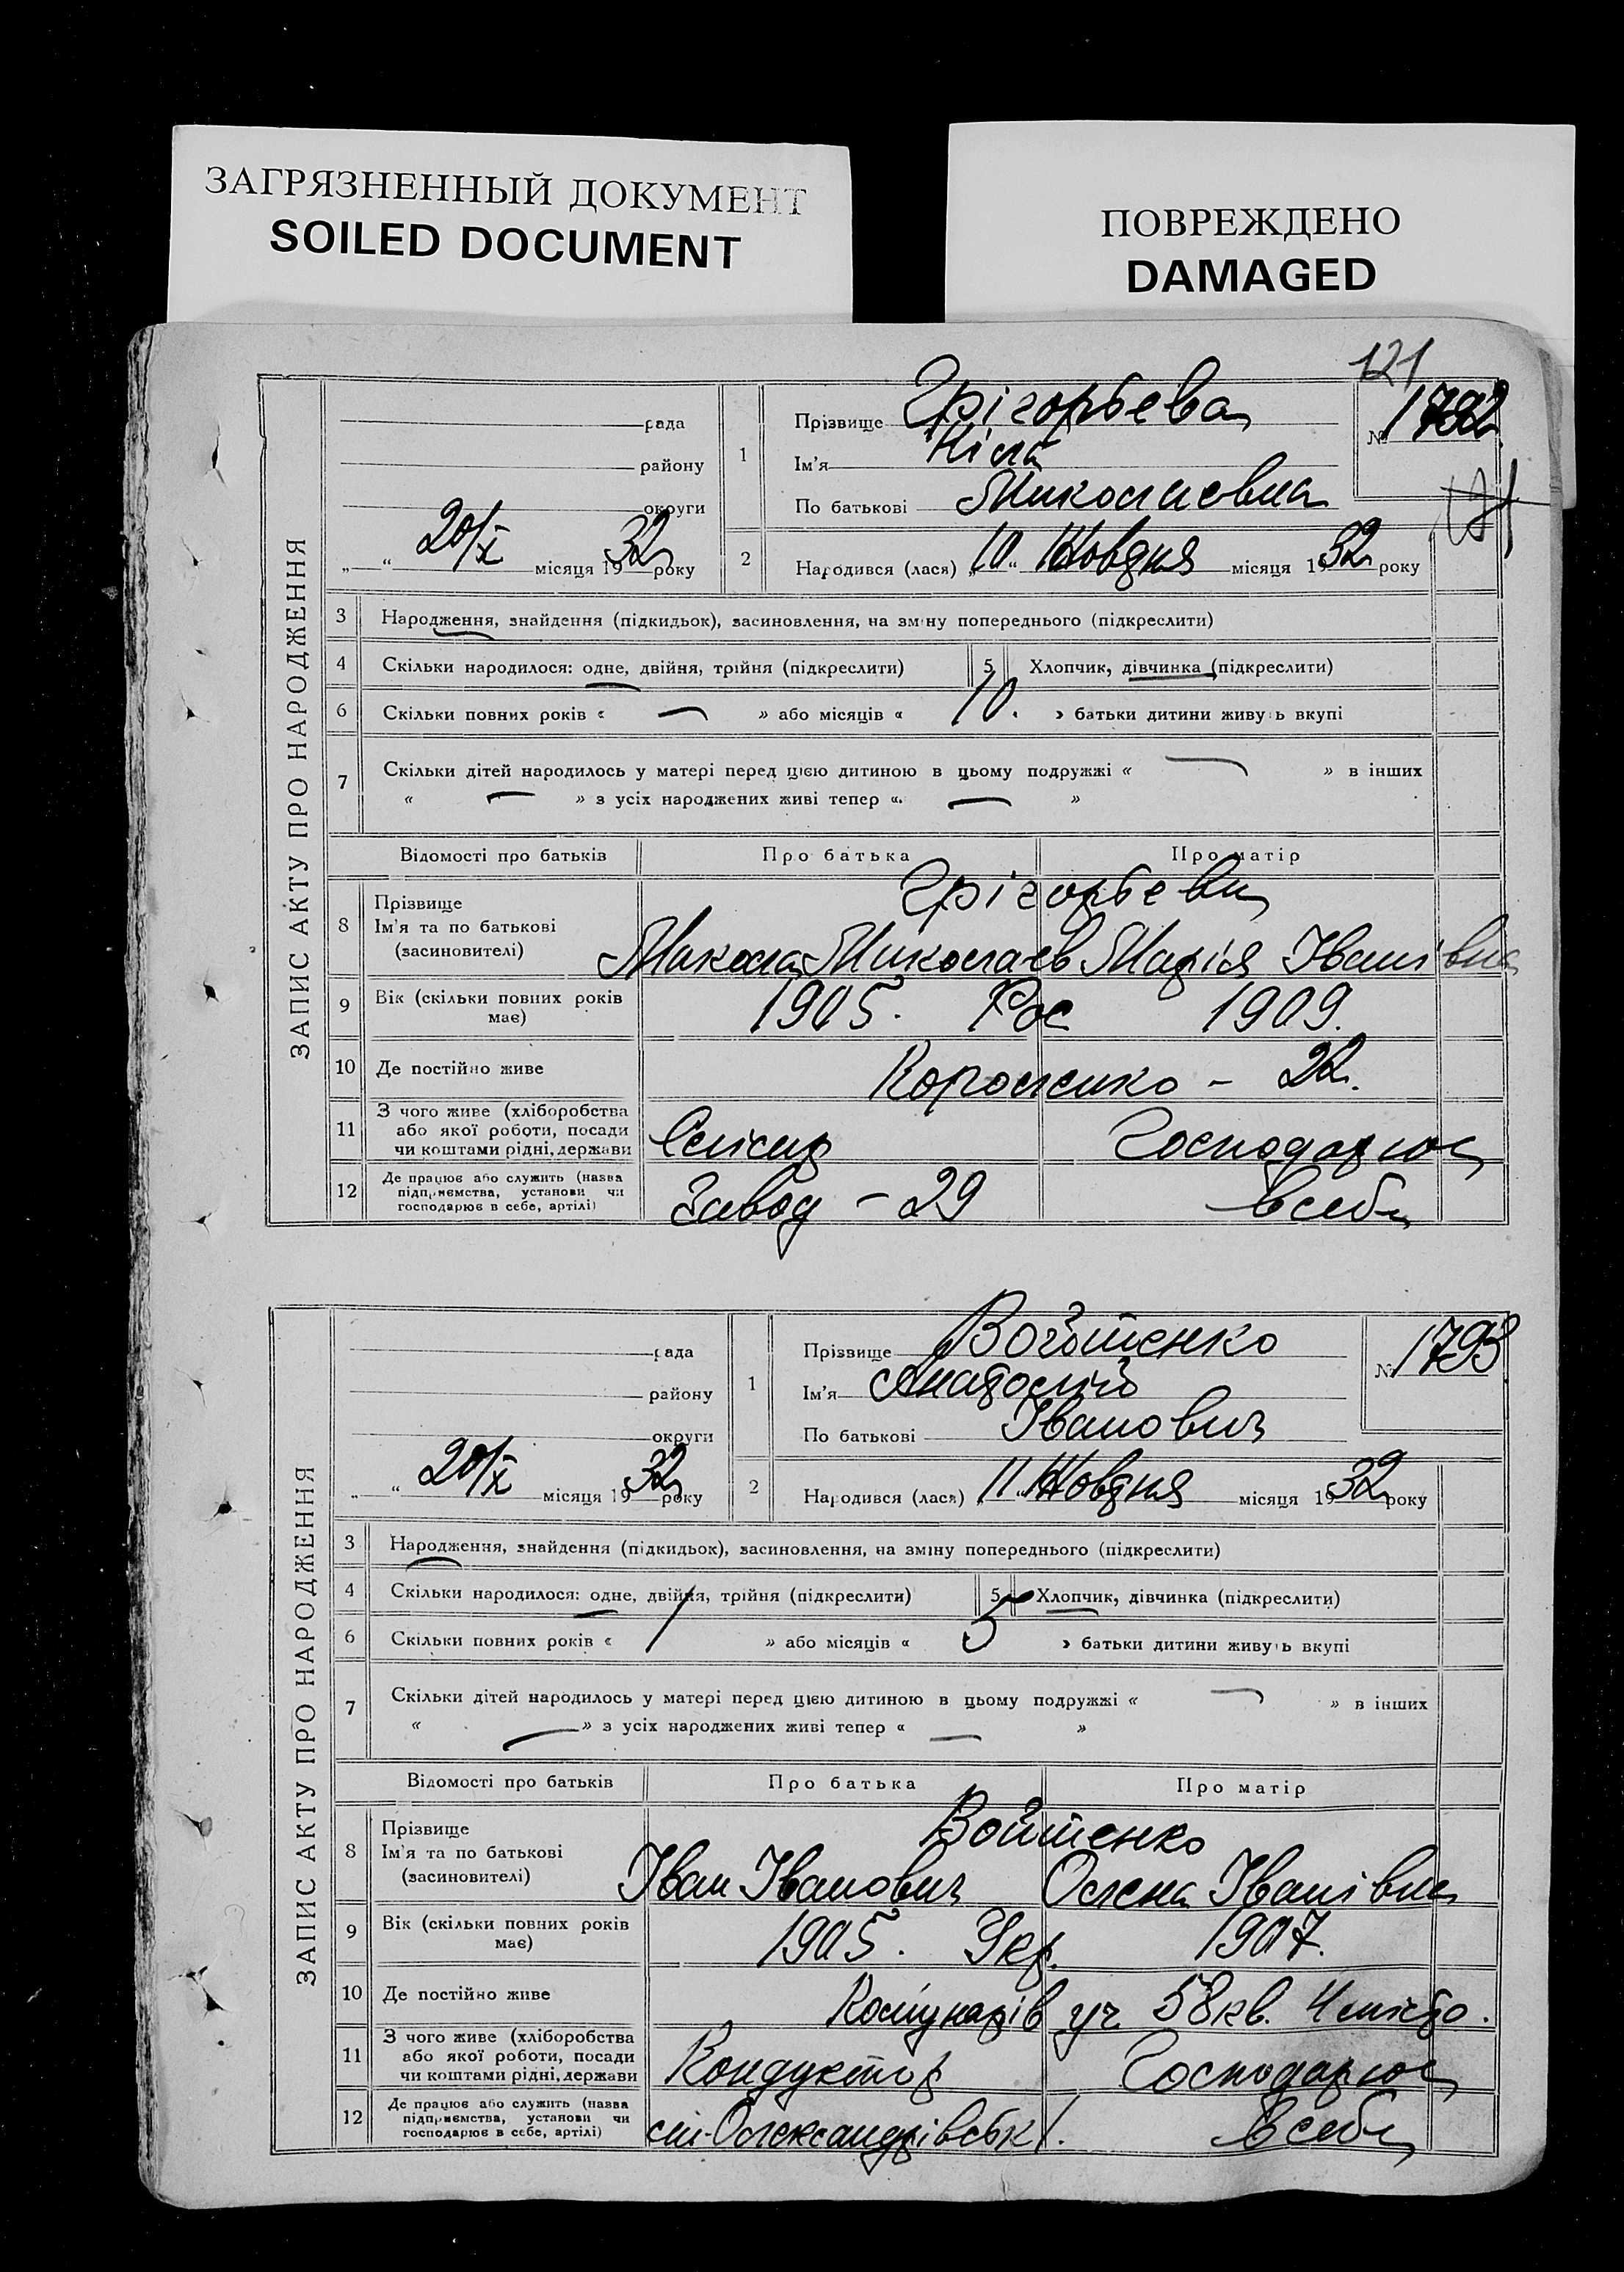 ЗАГРЯЗНЕННЫЙ ДОКУМЕНТ
SOILED DOCUMENT
ПОВРЕЖДЕНО
DAMAGED
121
ЗАПИС АКТУ ПРО НАРОДЖЕННЯ
рада
району
округи
„ “ 20/X місяця 1932 року
1
Прізвище Грігорьева
Ім'я Ніла
По батькові Николаевна
№ 1792
121
2 Народився (лася) „10“ Жовдня місяця 1932 року
3 Народження, знайдення (підкидьок), засиновлення, на зміну попереднього (підкреслити)
4 Скільки народилося: одне, двійня, трійня (підкреслити) 5 Хлопчик, дівчинка (підкреслити)
6 Скільки повних років « — » або місяців « 10. » батьки дитини живуть вкупі
7 Скільки дітей народилось у матері перед цією дитиною в цьому подружжі « — » в інших
« — » з усіх народжених живі тепер « — »
Відомості про батьків Про батька Про матір
8 Прізвище Грігорьеви
Ім'я та по батькові
(засиновителі) Микола Миколаев Марія Іванівна
9 Вік (скільки повних років має) 1905. Рос 1909.
10 Де постійно живе Короленко - 22.
11 З чого живе (хліборобства
або якої роботи, посади
чи коштами рідні, держави Слісар Господарює
12 Де працює або служить (назва
підприємства, установи чи
господарює в себе, артілі) Завод - 29 в себе
ЗАПИС АКТУ ПРО НАРОДЖЕННЯ
рада
району
округи
„ “ 20/X місяця 1932 року
1
Прізвище Войтенко
Ім'я Анатолій
По батькові Іванович
№ 1793
2 Народився (лася) „11“ Жовдня місяця 1932 року
3 Народження, знайдення (підкидьок), засиновлення, на зміну попереднього (підкреслити)
4 Скільки народилося: одне, двійня, трійня (підкреслити) 5 Хлопчик, дівчинка (підкреслити)
6 Скільки повних років « 1 » або місяців « 5 » батьки дитини живуть вкупі
7 Скільки дітей народилось у матері перед цією дитиною в цьому подружжі « — » в інших
« — » з усіх народжених живі тепер « — »
Відомості про батьків Про батька Про матір
8 Прізвище Войтенко
Ім'я та по батькові
(засиновителі) Іван Іванович Олена Іванівна
9 Вік (скільки повних років має) 1905. Укр. 1907.
10 Де постійно живе Комунарів 58 кв. 4 місто.
11 З чого живе (хліборобства
або якої роботи, посади
чи коштами рідні, держави Кондуктор Господарює
12 Де працює або служить (назва
підприємства, установи чи
господарює в себе, артілі) Олександрівськ 1. в себе